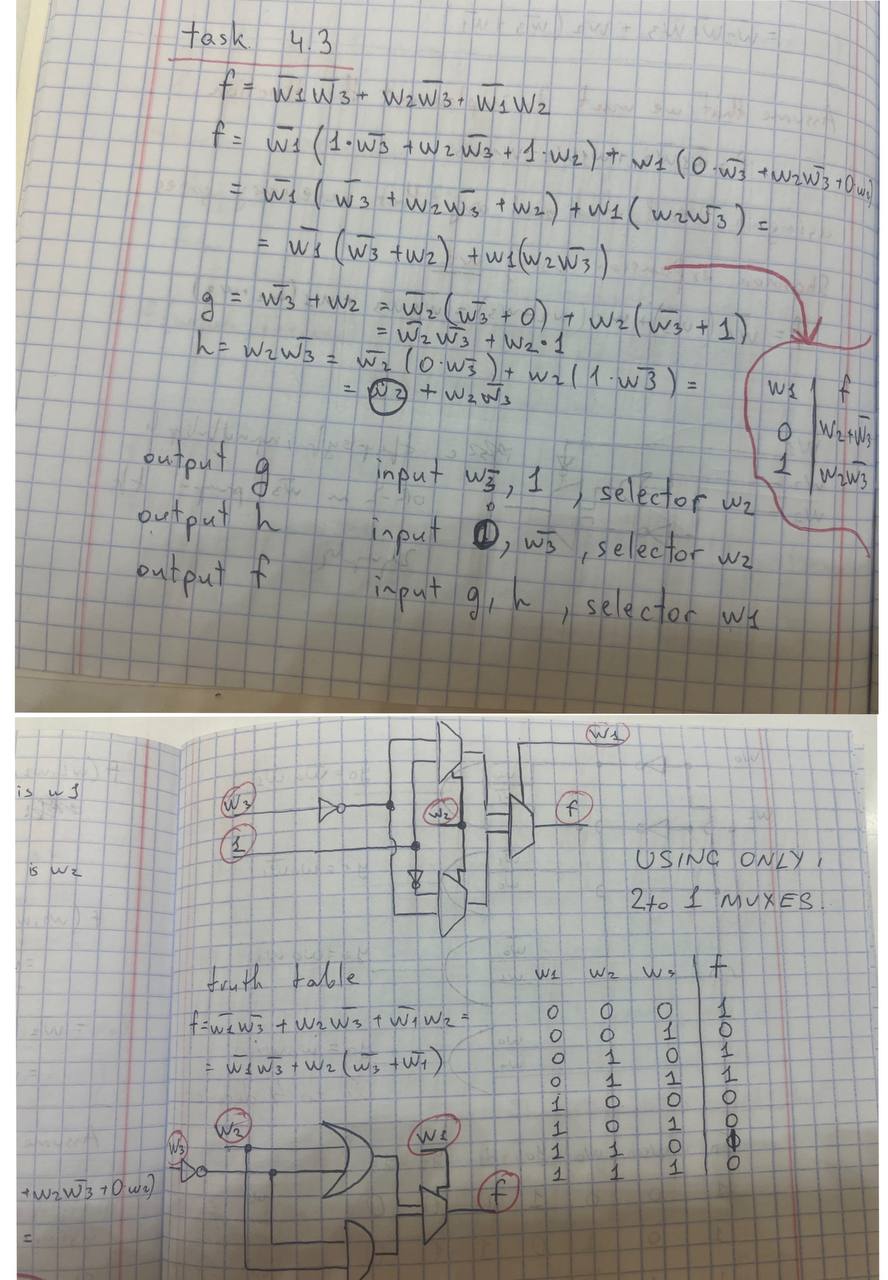 task 4.3
f = w̄1w̄3 + w2w̄3 + w̄1w2
f = w̄1(1·w̄3 + w2w̄3 + 1·w2) + w1(0·w̄3 + w2w̄3 + 0w2)
= w̄1(w̄3 + w2w̄3 + w2) + w1(w2w̄3) =
= w̄1(w̄3 + w2) + w1(w2w̄3)
g = w̄3 + w2 = w̄2(w̄3 + 0) + w2(w̄3 + 1)
= w̄2w̄3 + w2·1
h = w2w̄3 = w̄2(0·w̄3) + w2(1·w̄3) =
= w̄2 + w2w̄3
w1 | f
0 | w2+w̄3
1 | w2w̄3
output g input w̄3, 1, selector w2
output h input 0, w̄3, selector w2
output f input g, h, selector w1
is w1
is w2
+w2w̄3+0w2)
=
w1
w3
w2
f
1
USING ONLY
2to 1 MUXES.
truth table
f=w̄1w̄3 + w2w̄3 + w̄1w2 =
= w̄1w̄3 + w2(w̄3 + w̄1)
w1 w2 w3 f
0 0 0 1
0 0 1 0
0 1 0 1
0 1 1 1
1 0 0 0
1 0 1 0
1 1 0
1 1 1 0
w3
w2
w1
f